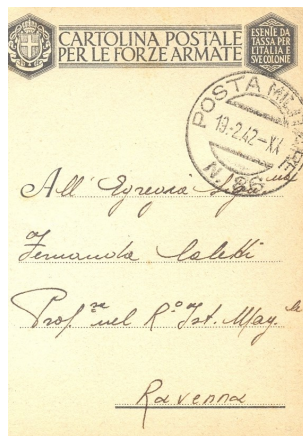 CARTOLINA POSTALE
PER LE FORZE ARMATE
ESENTE DA
TASSA PER
L'ITALIA E
SUE COLONIE
POSTA MILITARE
19·2.42-XX
N.
All' Egregia Sig.na
Fernanda
Prof.ssa nel R.o Ist. Mag.le
Ravenna